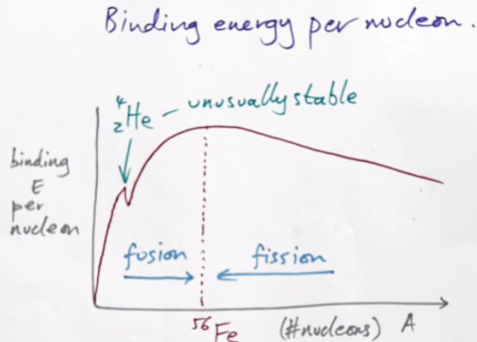 Binding energy per nucleon.
⁴₂He – unusually stable
binding
E
per
nucleon
fusion
fission
⁵⁶Fe
(#nucleons) A